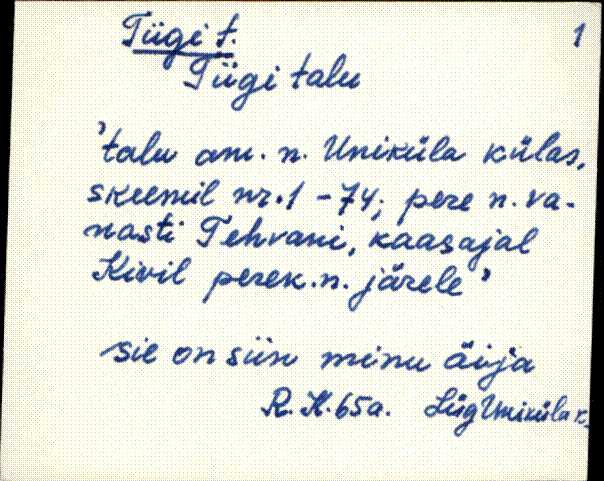 Tiigi t. 1
Tiigi talu
'talu am. n. Uniküla külas,
skeemil nr. 1 - 74; pere n. va-
nasti Tehvani, kaasajal
Kivil perek. n. järele'
sie on siin minu äija
R. K. 65a. Lüg Uniküla k.